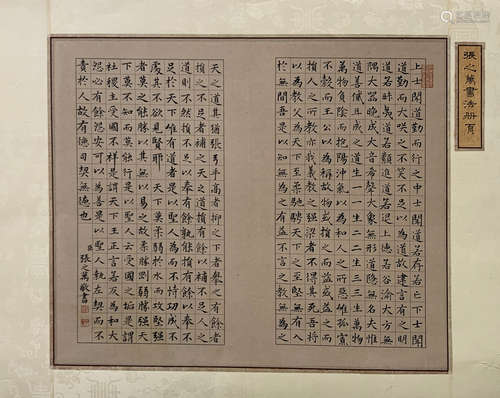 張之萬書法册頁
上士聞道勤而行之中士聞道若存若亡下士聞
道勤而大咲之不笑不足以為道故建言有之明
道若昧夷道若纇進道若退上德若谷渝大方無
隅大器晚成大音希聲大象無形道隱無名夫惟
道善且成之道生一一生二二生三三生萬物
萬物負陰而抱陽沖氣以為和人之所惡惟孤寡
不穀而王公以為稱故物或損之而益或益之而
損人之所教亦我義教之强梁者不得其死吾將
以為教父天下之至柔馳騁天下之至堅無有入
於無間吾是以知無為之有益不言之教無為之
天之道其猶張弓乎高者抑之下者舉之有餘者
損之不足者補之天之道損有餘以補不足人之
道則不然損不足以奉有餘孰能損有餘以奉不
足於天下惟有道者是以聖人為而不恃功成不
處其不欲見賢耶 天下莫柔弱於水而攻堅强
者莫之能勝以其無以易之故柔勝剛弱勝强天
下莫不知而莫能行是以聖人云受國之垢是謂
社稷主受國不祥是謂天下王正言若反為和大
怨必有餘怨安可以為善是以聖人執左契而不
責於人故有德司契無德也
臣張之萬敬書